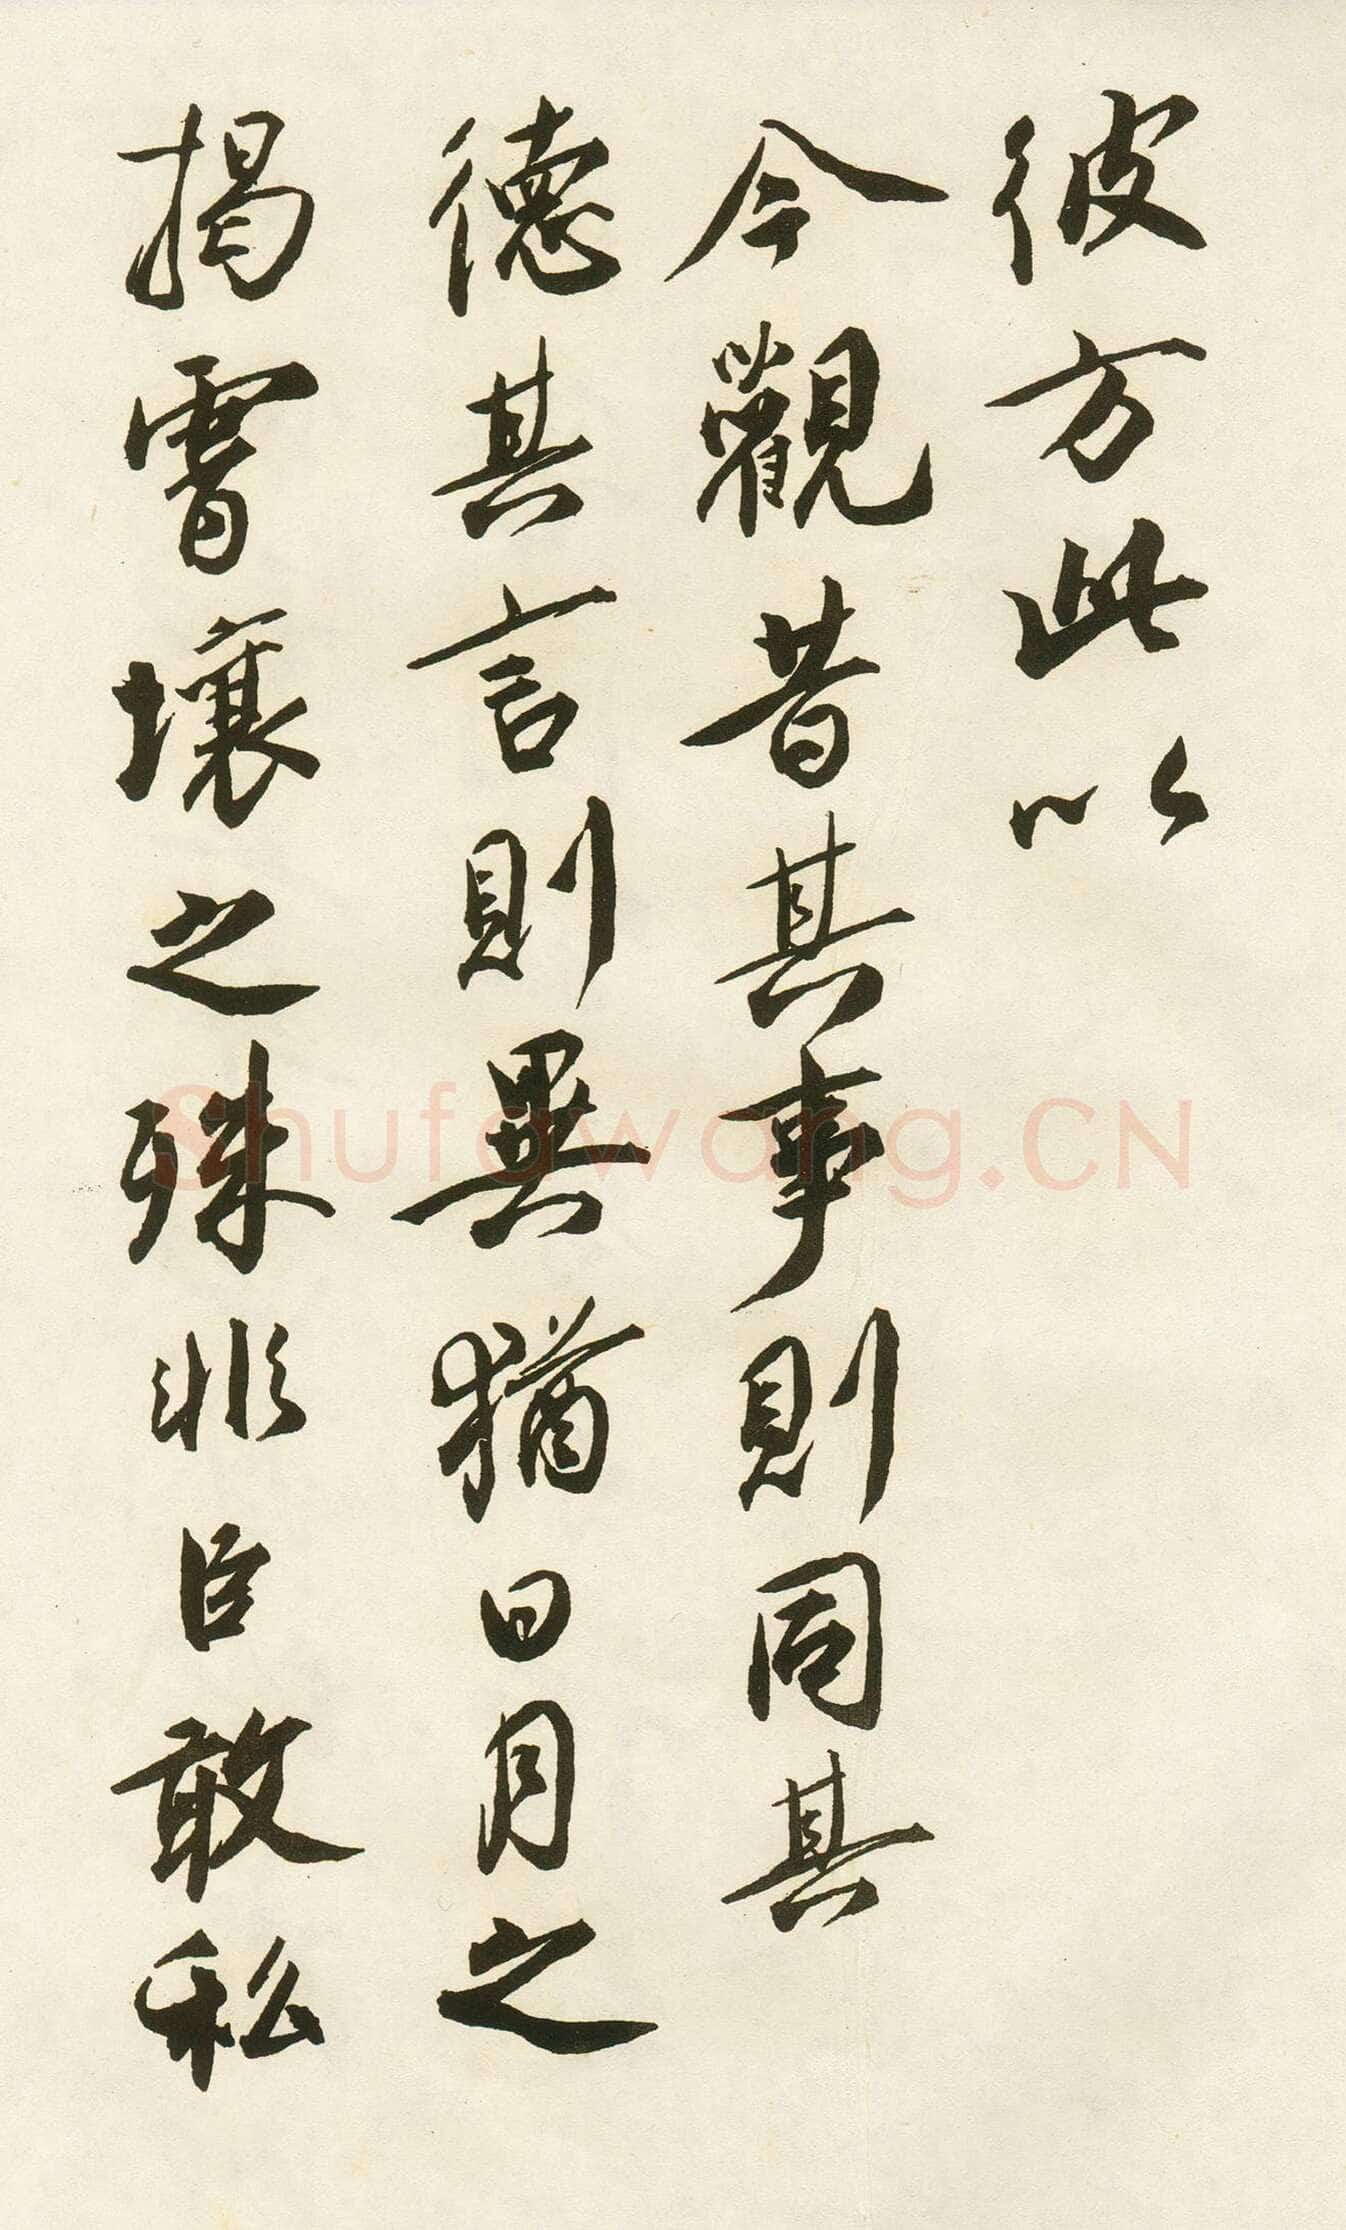 彼方此以
今觀昔其事則同其
德其言則異猶日月之
揭霄壤之殊非臣敢私
Shufawang.CN